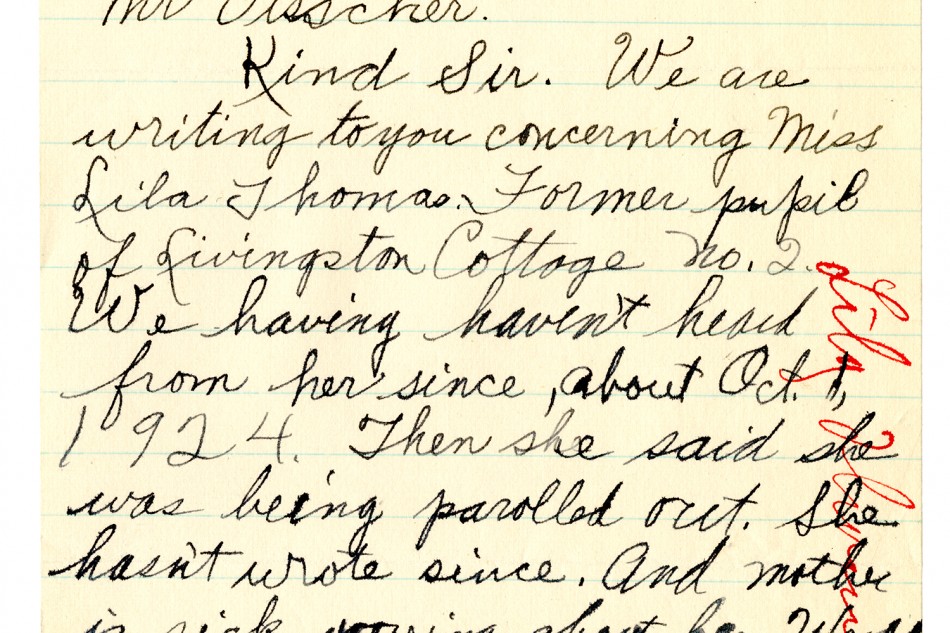 Mr Visscher.
Kind Sir. We are
writing to you concerning Miss
Lila Thomas. Former pupil
of Livingston Cottage no. 2.
We having haven't heard
from her since, about Oct. 1,
1924. Then she said she
was being parolled out. She
hasn't wrote since. And mother
is sick worring about he
Lila Thomas